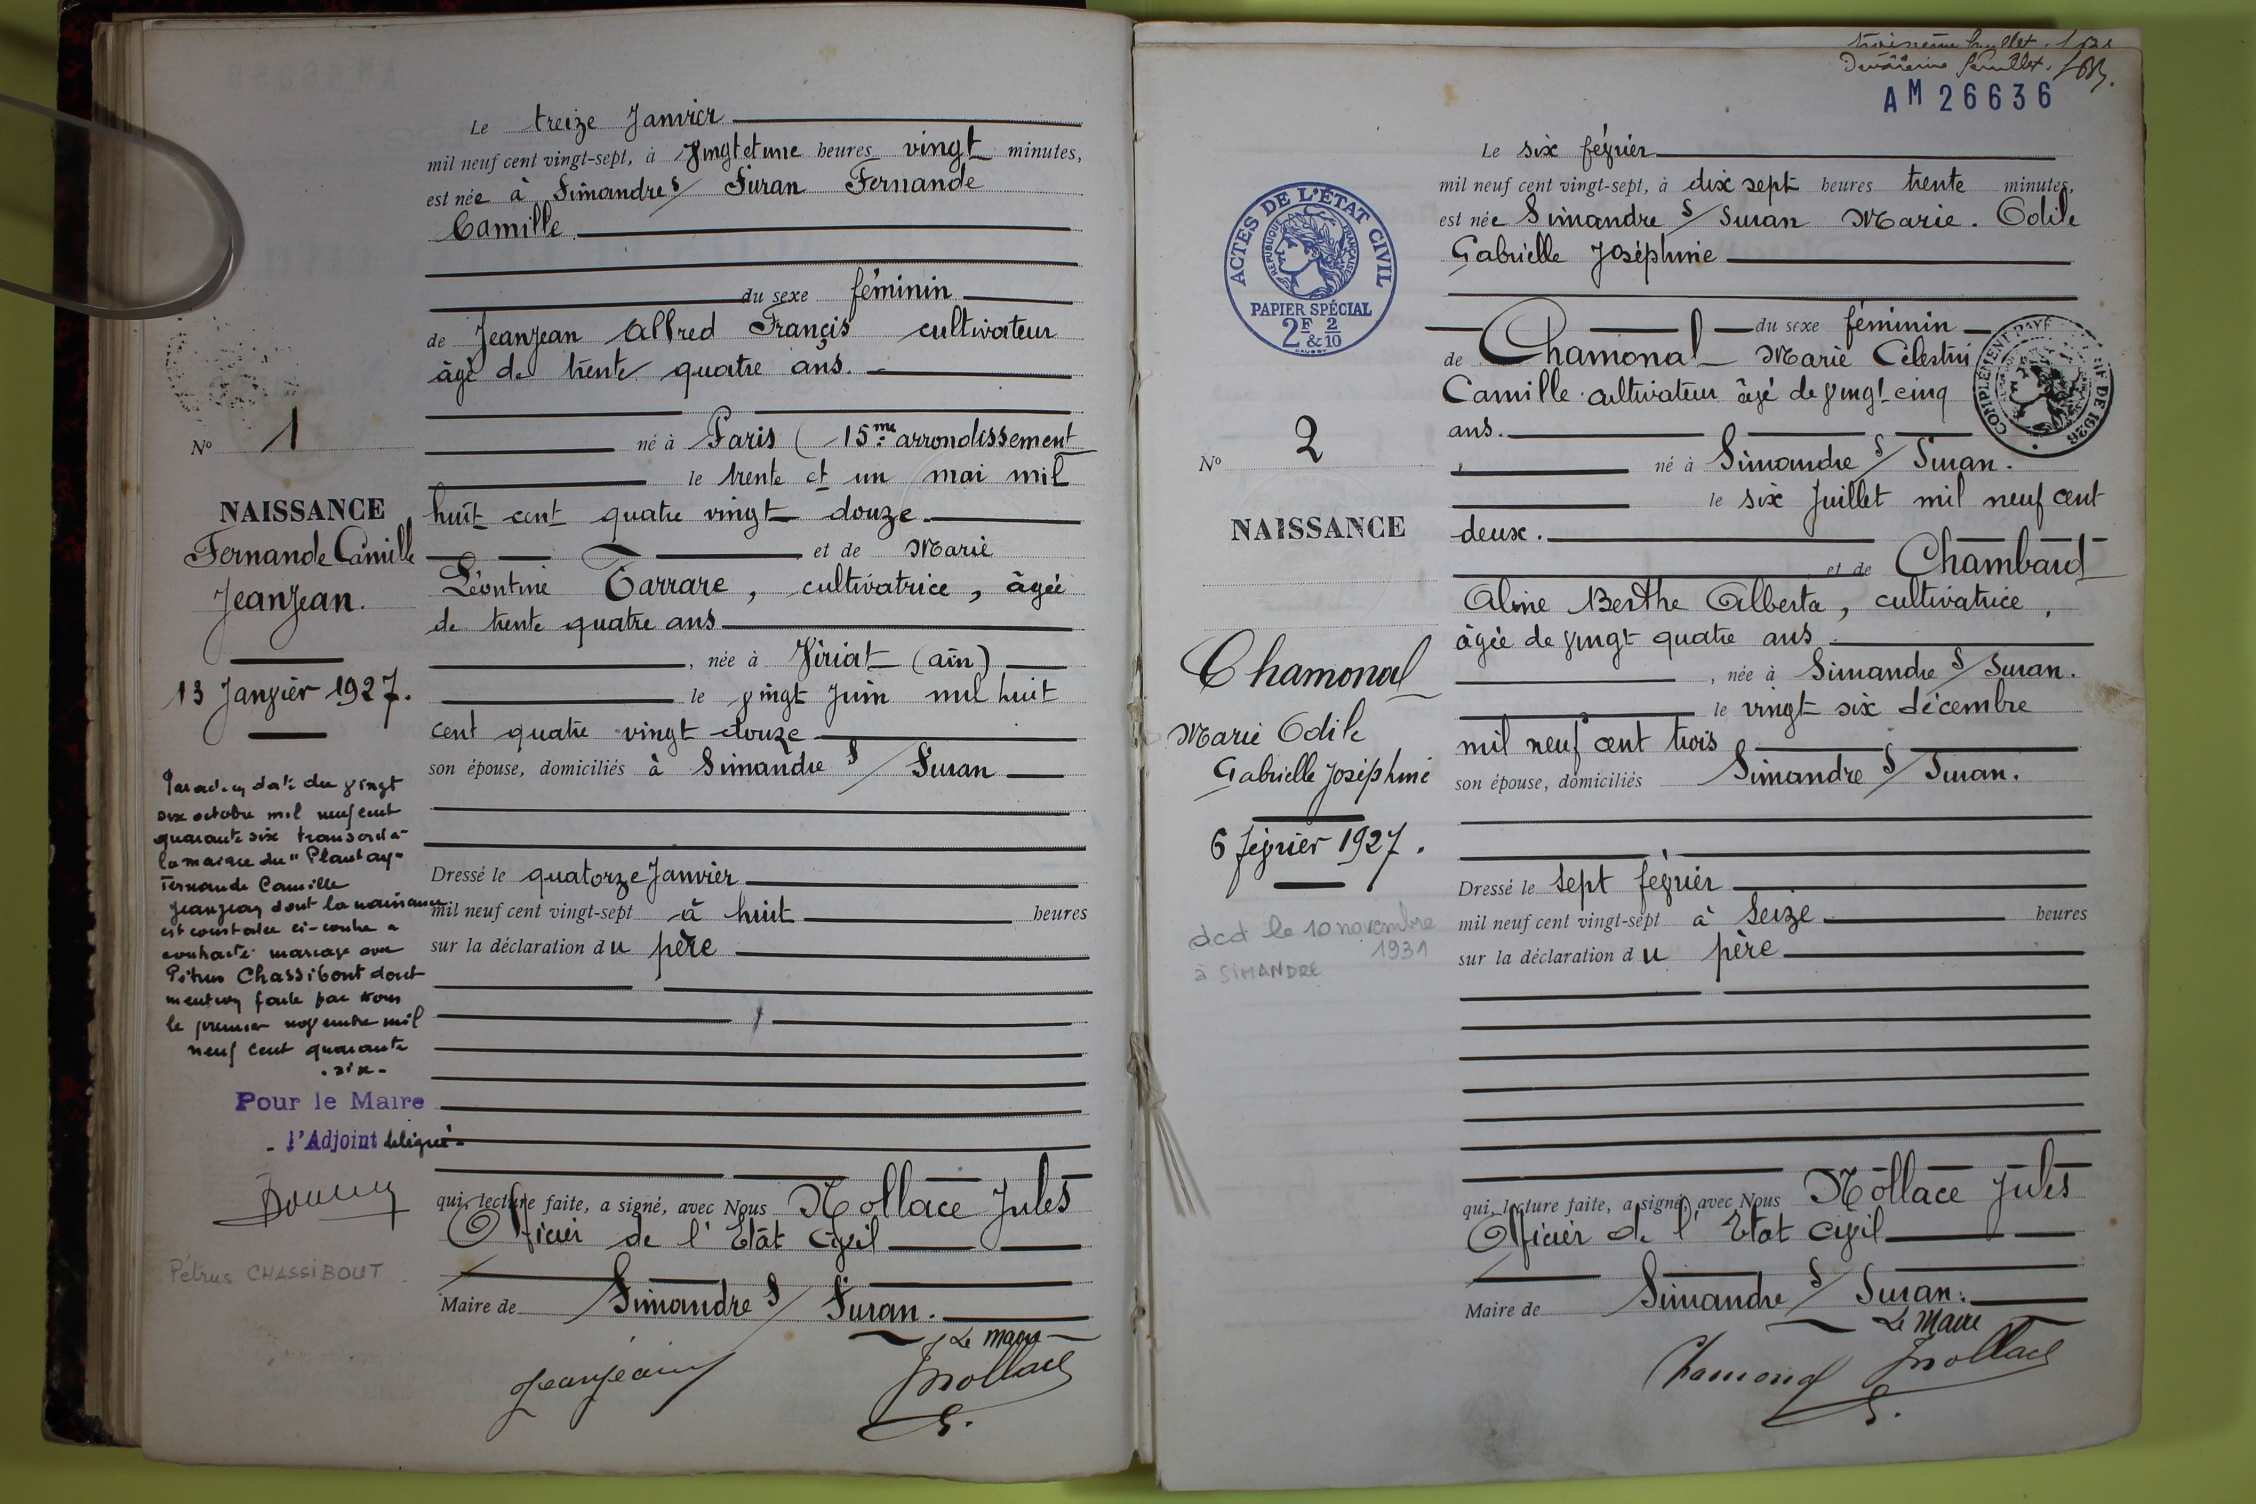 Le treize Janvier
mil neuf cent vingt-sept, à vingt et une heures vingt minutes,
est née à Simandre s/ Suran Fernande
Camille
du sexe féminin
de Jeanjean Alfred Françis cultivateur
âgé de trente quatre ans.
né à Paris ( 15me arrondissement
le trente et un mai mil
huit cent quatre vingt douze.
et de Marie
Léontine Tarrare, cultivatrice, âgée
de trente quatre ans
, née à Viriat (ain)
le vingt Juin mil huit
cent quatre vingt douze
son épouse, domiciliés à Simandre s/ Suran
Dressé le quatorze Janvier
mil neuf cent vingt-sept à huit heures
sur la déclaration du père
qui, lecture faite, a signé, avec Nous Nollace Jules
Officier de l'Etat Civil
Maire de Simandre s/ Suran.
Le Maire
Jeanjean
Nollace
No 1
NAISSANCE
Fernande Camille
Jeanjean.
13 Janvier 1927.
date du vingt
six octobre mil neuf cent
quarante six
la mairie du "Plantay"
Fernande Camille
Jeanjean dont la naissance
est constatée ci-contre a
contracté mariage avec
Pétrus Chassibout dont
mention faite par nous
le premier novembre mil
neuf cent quarante
six -
Pour le Maire
- l'Adjoint délégué -
Pétrus CHASSIBOUT
troisième feuillet.
Deuxième feuillet.
AM 26636
ACTES DE L'ÉTAT CIVIL
RÉPUBLIQUE FRANÇAISE
PAPIER SPÉCIAL
2F & 2/10
Le six février
mil neuf cent vingt-sept, à dix sept heures trente minutes,
est née Simandre s/ Suran Marie. Odile
Gabrielle Joséphine
du sexe féminin
de Chamonal Marie Célestin
Camille cultivateur âgé de vingt cinq
ans.
né à Simandre s/ Suran.
le six Juillet mil neuf cent
deux.
et de Chambard
Aline Berthe Alberta, cultivatrice,
âgée de vingt quatre ans
, née à Simandre s/ Suran.
le vingt six décembre
mil neuf cent trois
son épouse, domiciliés Simandre s/ Suran.
Dressé le sept février
mil neuf cent vingt-sept à seize heures
sur la déclaration du père
qui, lecture faite, a signé, avec Nous Nollace Jules
Officier de l'Etat Civil
Maire de Simandre s/ Suran.
Le Maire
Chamonal
Nollace
COMPLÉMENT PAYÉ DE 1926
No 2
NAISSANCE
Chamonal
Marie Odile
Gabrielle Joséphine
6 février 1927.
dcd le 10 novembre
1931
à SIMANDRE